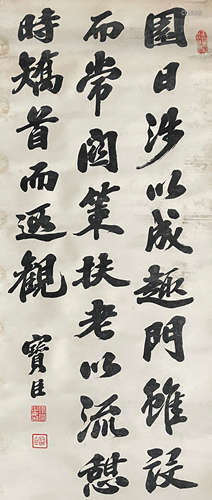 園日涉以成趣門雖設
而常關策扶老以流憩
時矯首而遐觀
寶臣